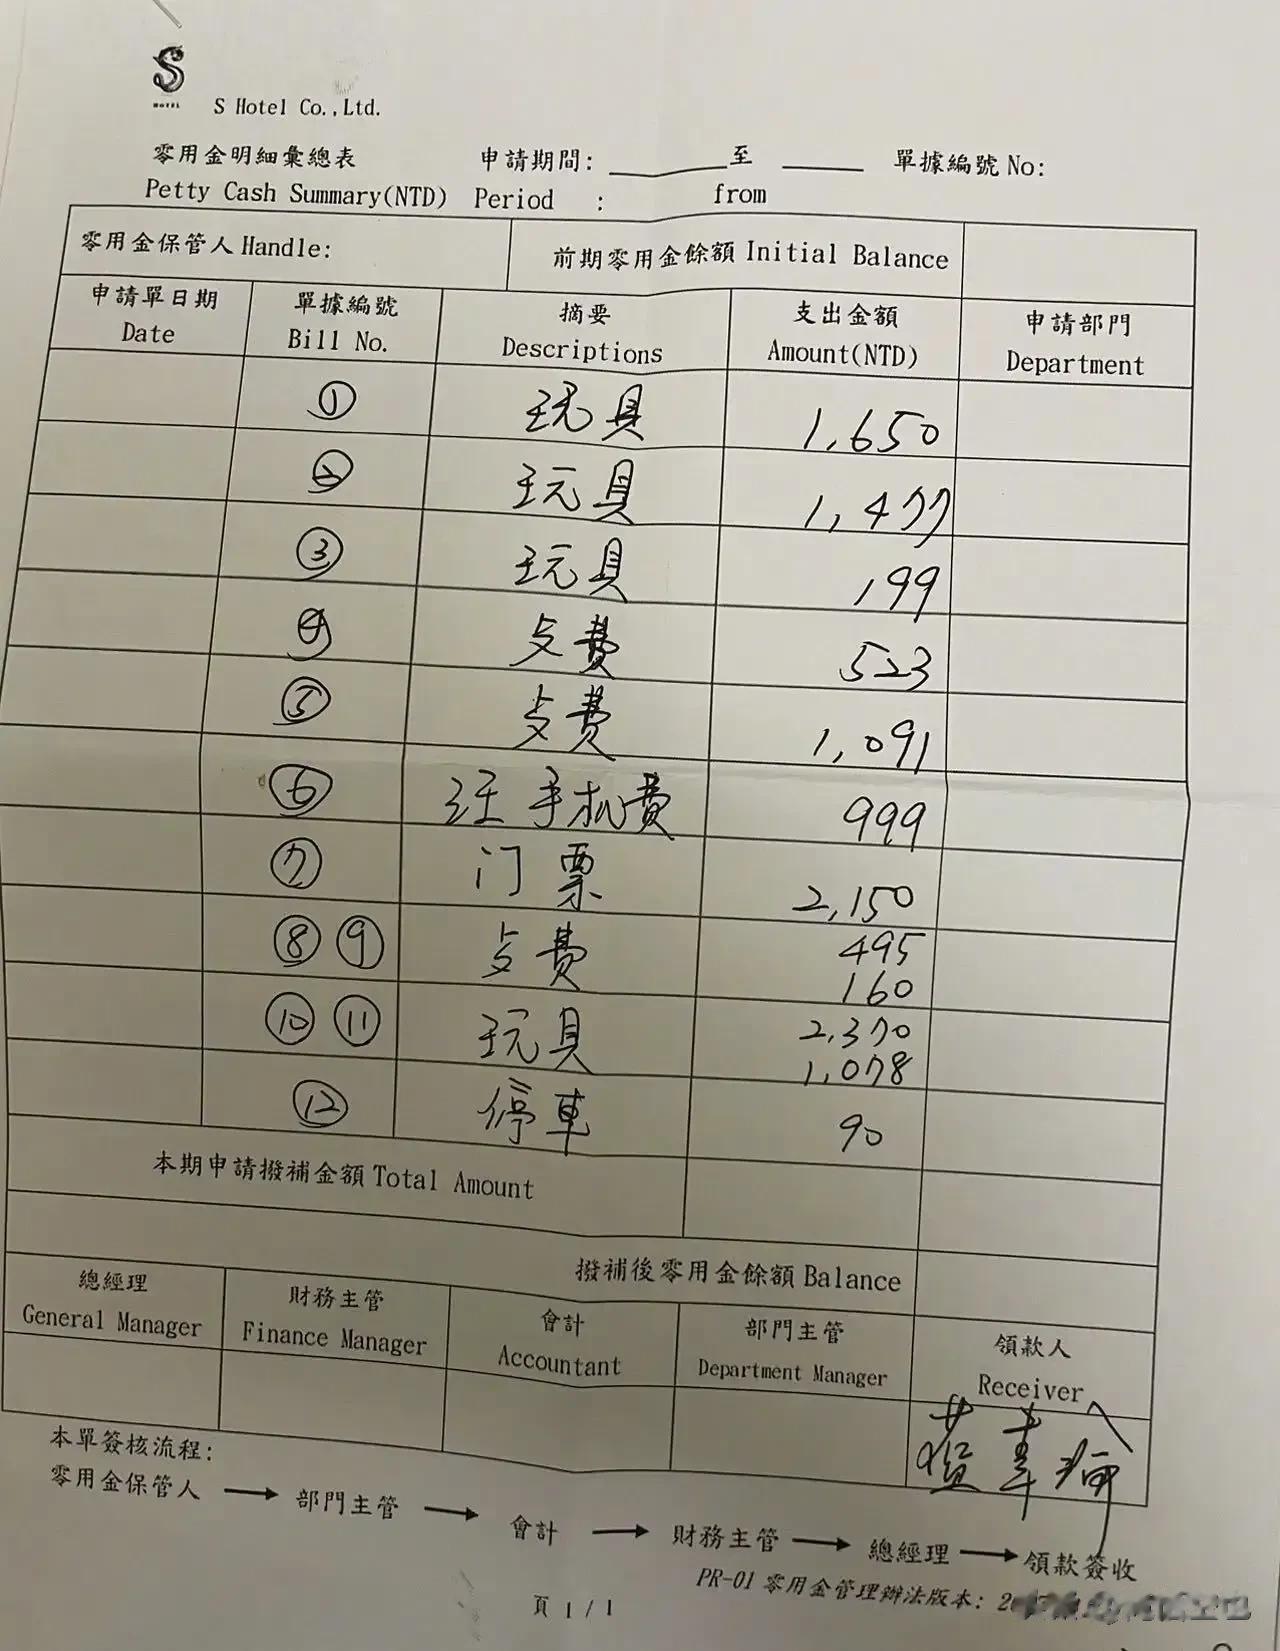 S
HOTEL
S Hotel Co.,Ltd.
零用金明細彙總表 申請期間: 至 單據編號 No:
Petty Cash Summary(NTD) Period : from
零用金保管人 Handle: 前期零用金餘額 Initial Balance
申請單日期 單據編號 摘要 支出金額 申請部門
Date Bill No. Descriptions Amount(NTD) Department
① 玩具 1,650
② 玩具 1,477
③ 玩具 199
④ 歺費 523
⑤ 歺費 1,091
⑥ 汪手机費 999
⑦ 门票 2,150
⑧ ⑨ 歺費 495
160
⑩ ⑪ 玩具 2,370
1,078
⑫ 停車 90
本期申請撥補金額 Total Amount
撥補後零用金餘額 Balance
總經理 財務主管 會計 部門主管 領款人
General Manager Finance Manager Accountant Department Manager Receiver
本單簽核流程:
零用金保管人 → 部門主管 → 會計 → 財務主管 → 總經理 → 領款簽收
PR-01 零用金管理辦法版本: 2
頁 1 / 1